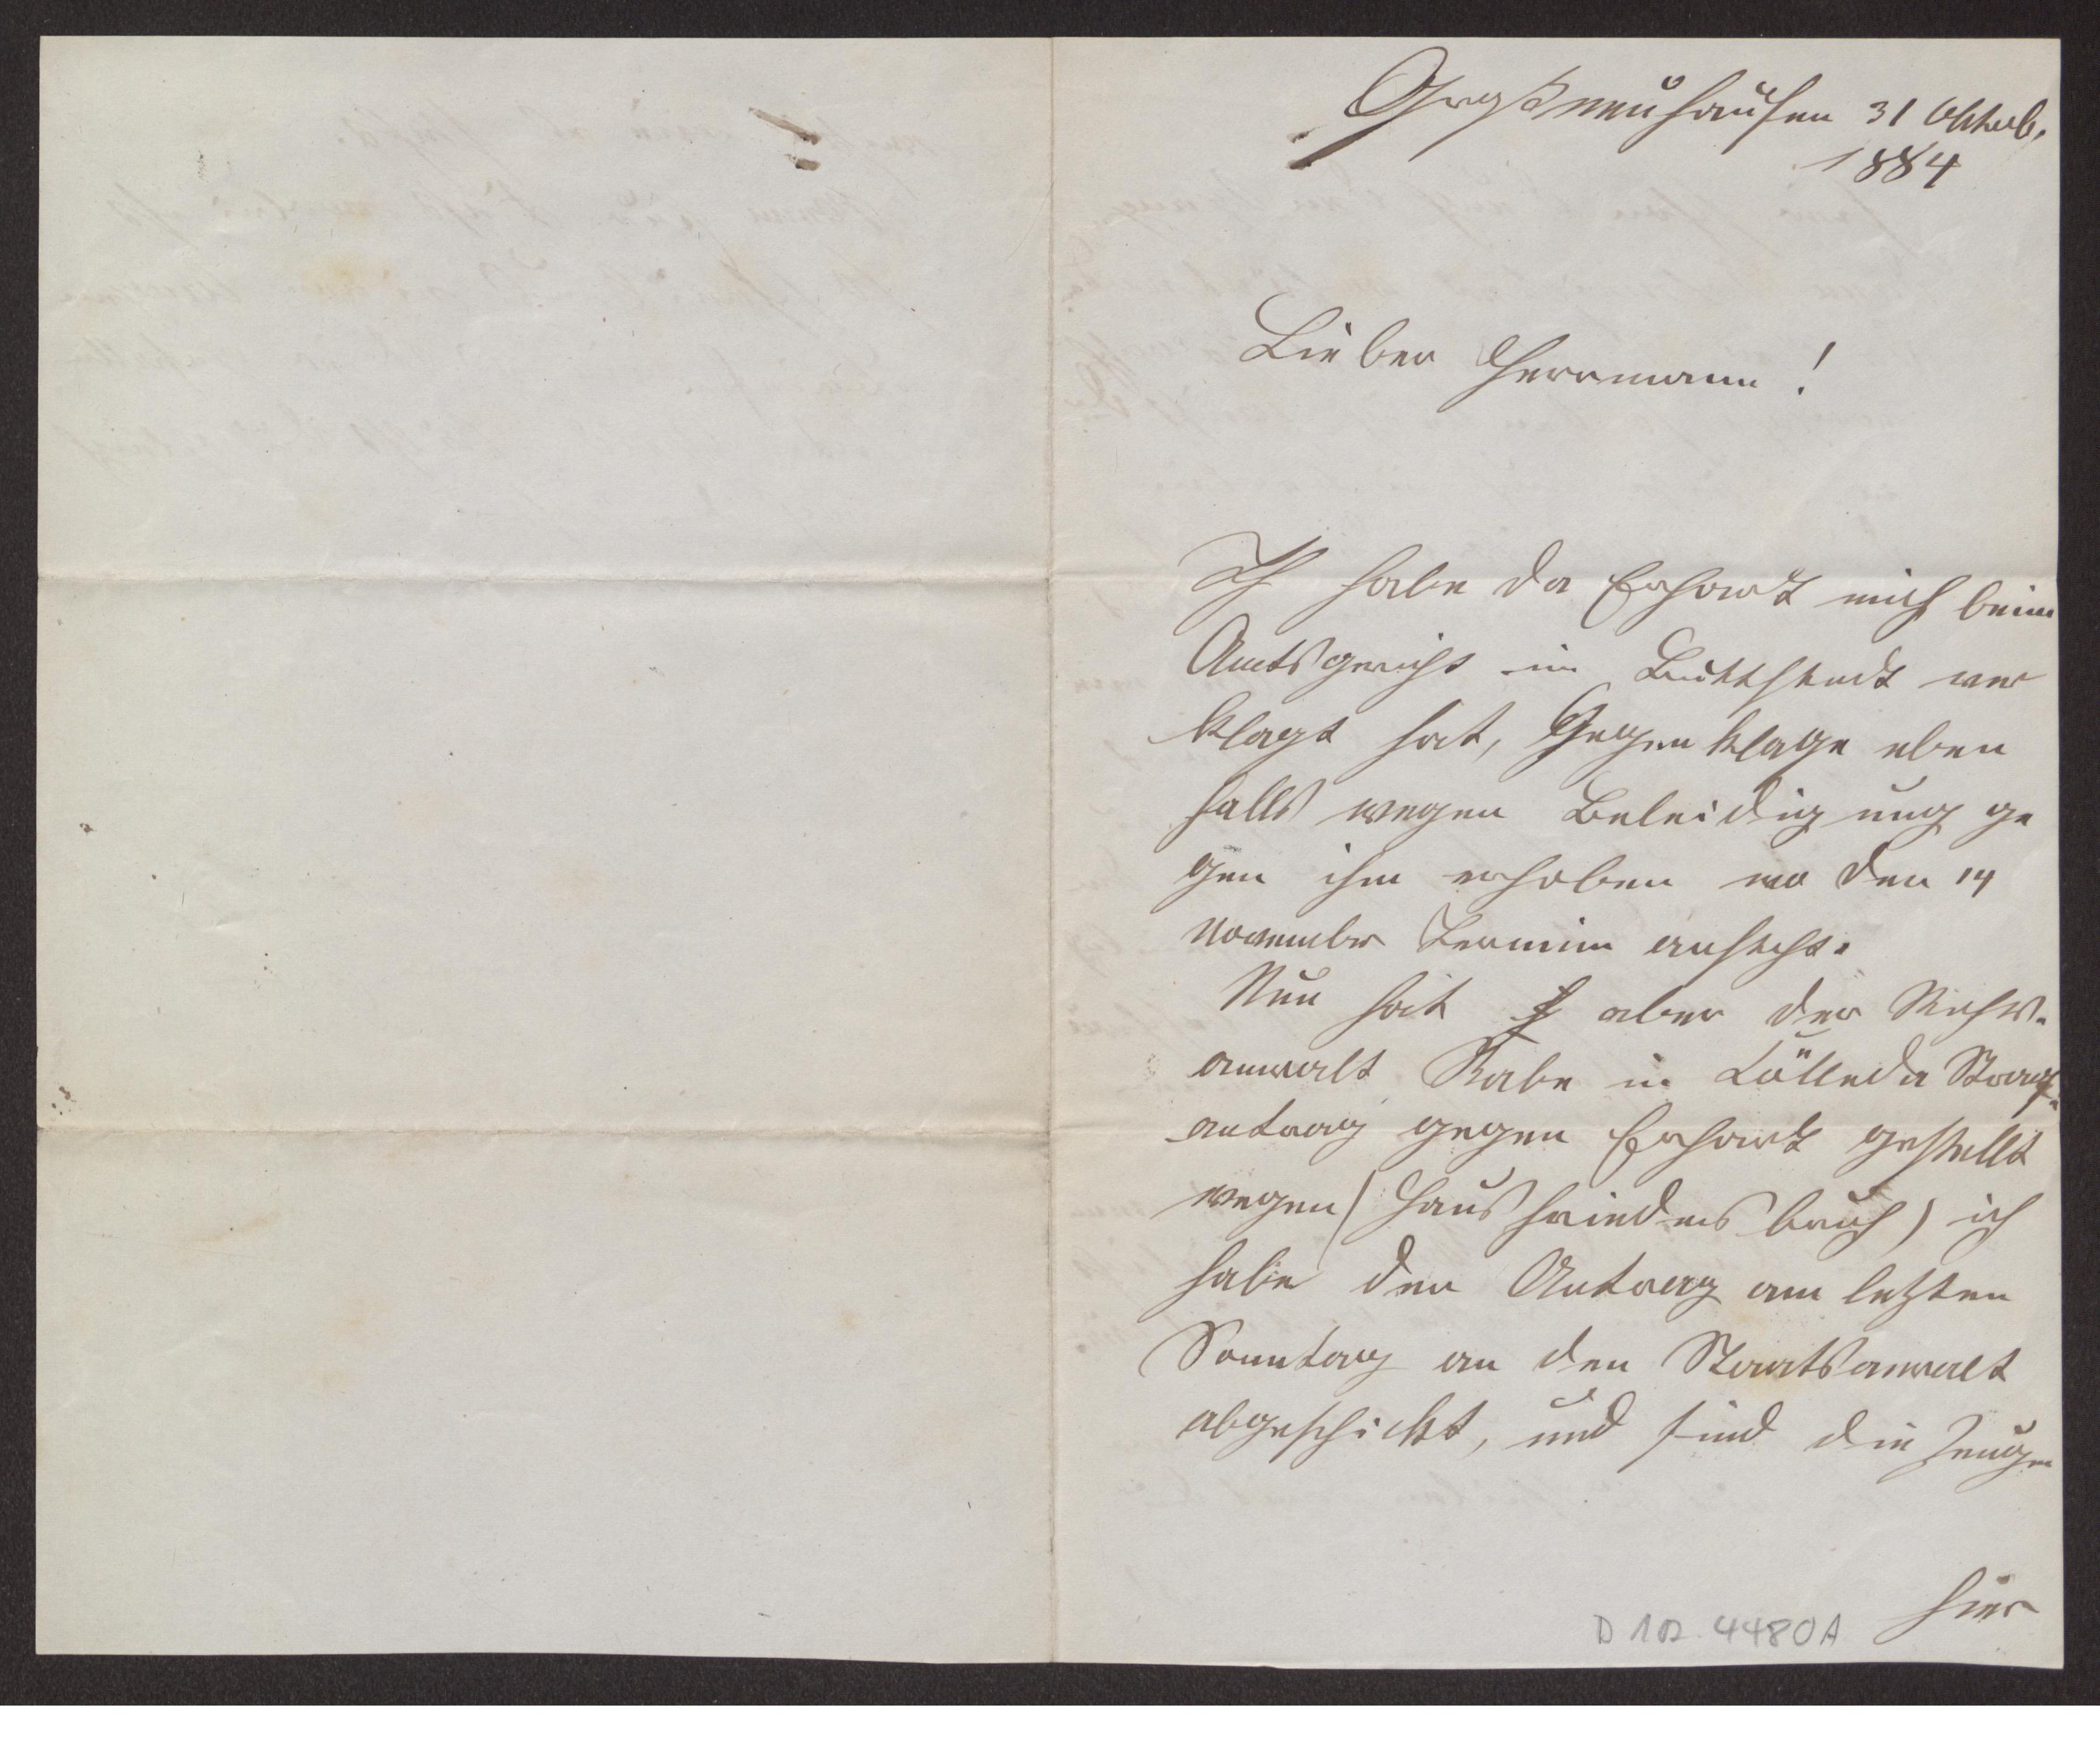 Großneuhausen 31 Oktob.
1884
Lieber Herrmann!
Ich habe da Erhardt mich beim
Amtsgericht in Buttstedt ver
klagt hat, Gegenklage eben
falls wegen Beleidigung ge
gen ihn erhoben wo den 14
November Termin ansteht.
Nun hat aber der Rechts.
anwalt Rabe in Cölleda Straf.
antrag gegen Erhardt gestellt
wegen (Hausfriedensbruch) ich
habe den Antrag am letzten
Sonntag an den Staatsanwalt
abgeschickt, und sind die Zeugen
hier
D 102 4480A